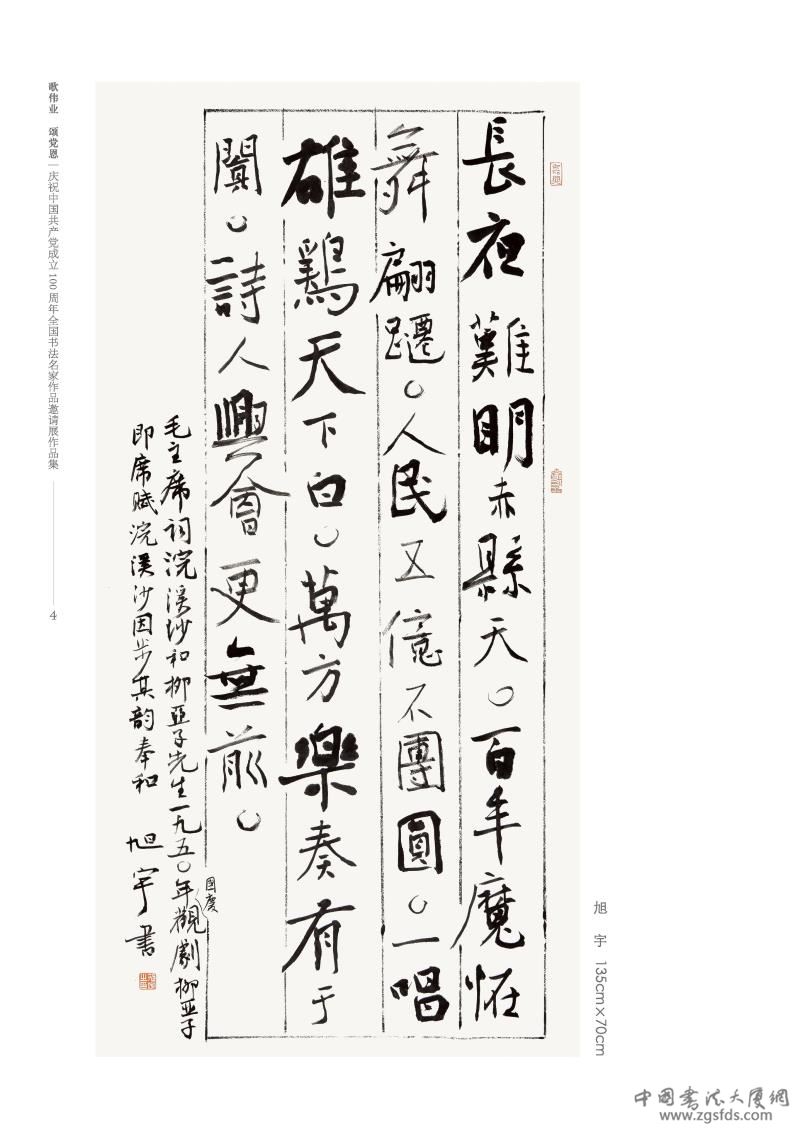 長夜難明赤縣天。百年魔恠
舞翩躚。人民五億不團圓。一唱
雄鷄天下白。萬方樂奏有于
闐。詩人興會更無前。
毛主席词浣溪沙和柳亞子先生一九五〇年國慶觀劇柳亞子
即席賦浣溪沙因步其韵奉和 旭宇書
歌伟业 颂党恩 | 庆祝中国共产党成立100周年全国书法名家作品邀请展作品集
4
旭 宇 135cm×70cm
中国書法大廈網
www.zgsfds.com